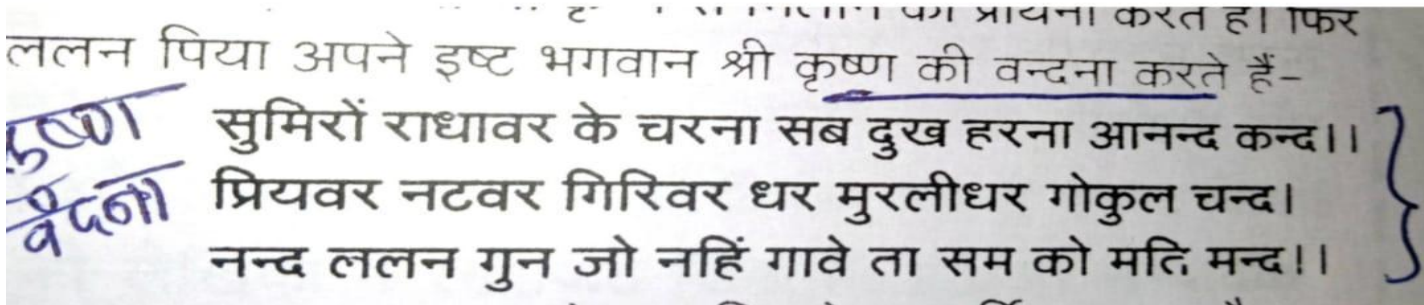 प्रार्थना करते हैं। फिर
ललन पिया अपने इष्ट भगवान श्री कृष्ण की वन्दना करते हैं–
कृष्ण सुमिरों राधावर के चरना सब दुख हरना आनन्द कन्द।।
वंदना प्रियवर नटवर गिरिवर धर मुरलीधर गोकुल चन्द।
नन्द ललन गुन जो नहिं गावे ता सम को मति मन्द।।